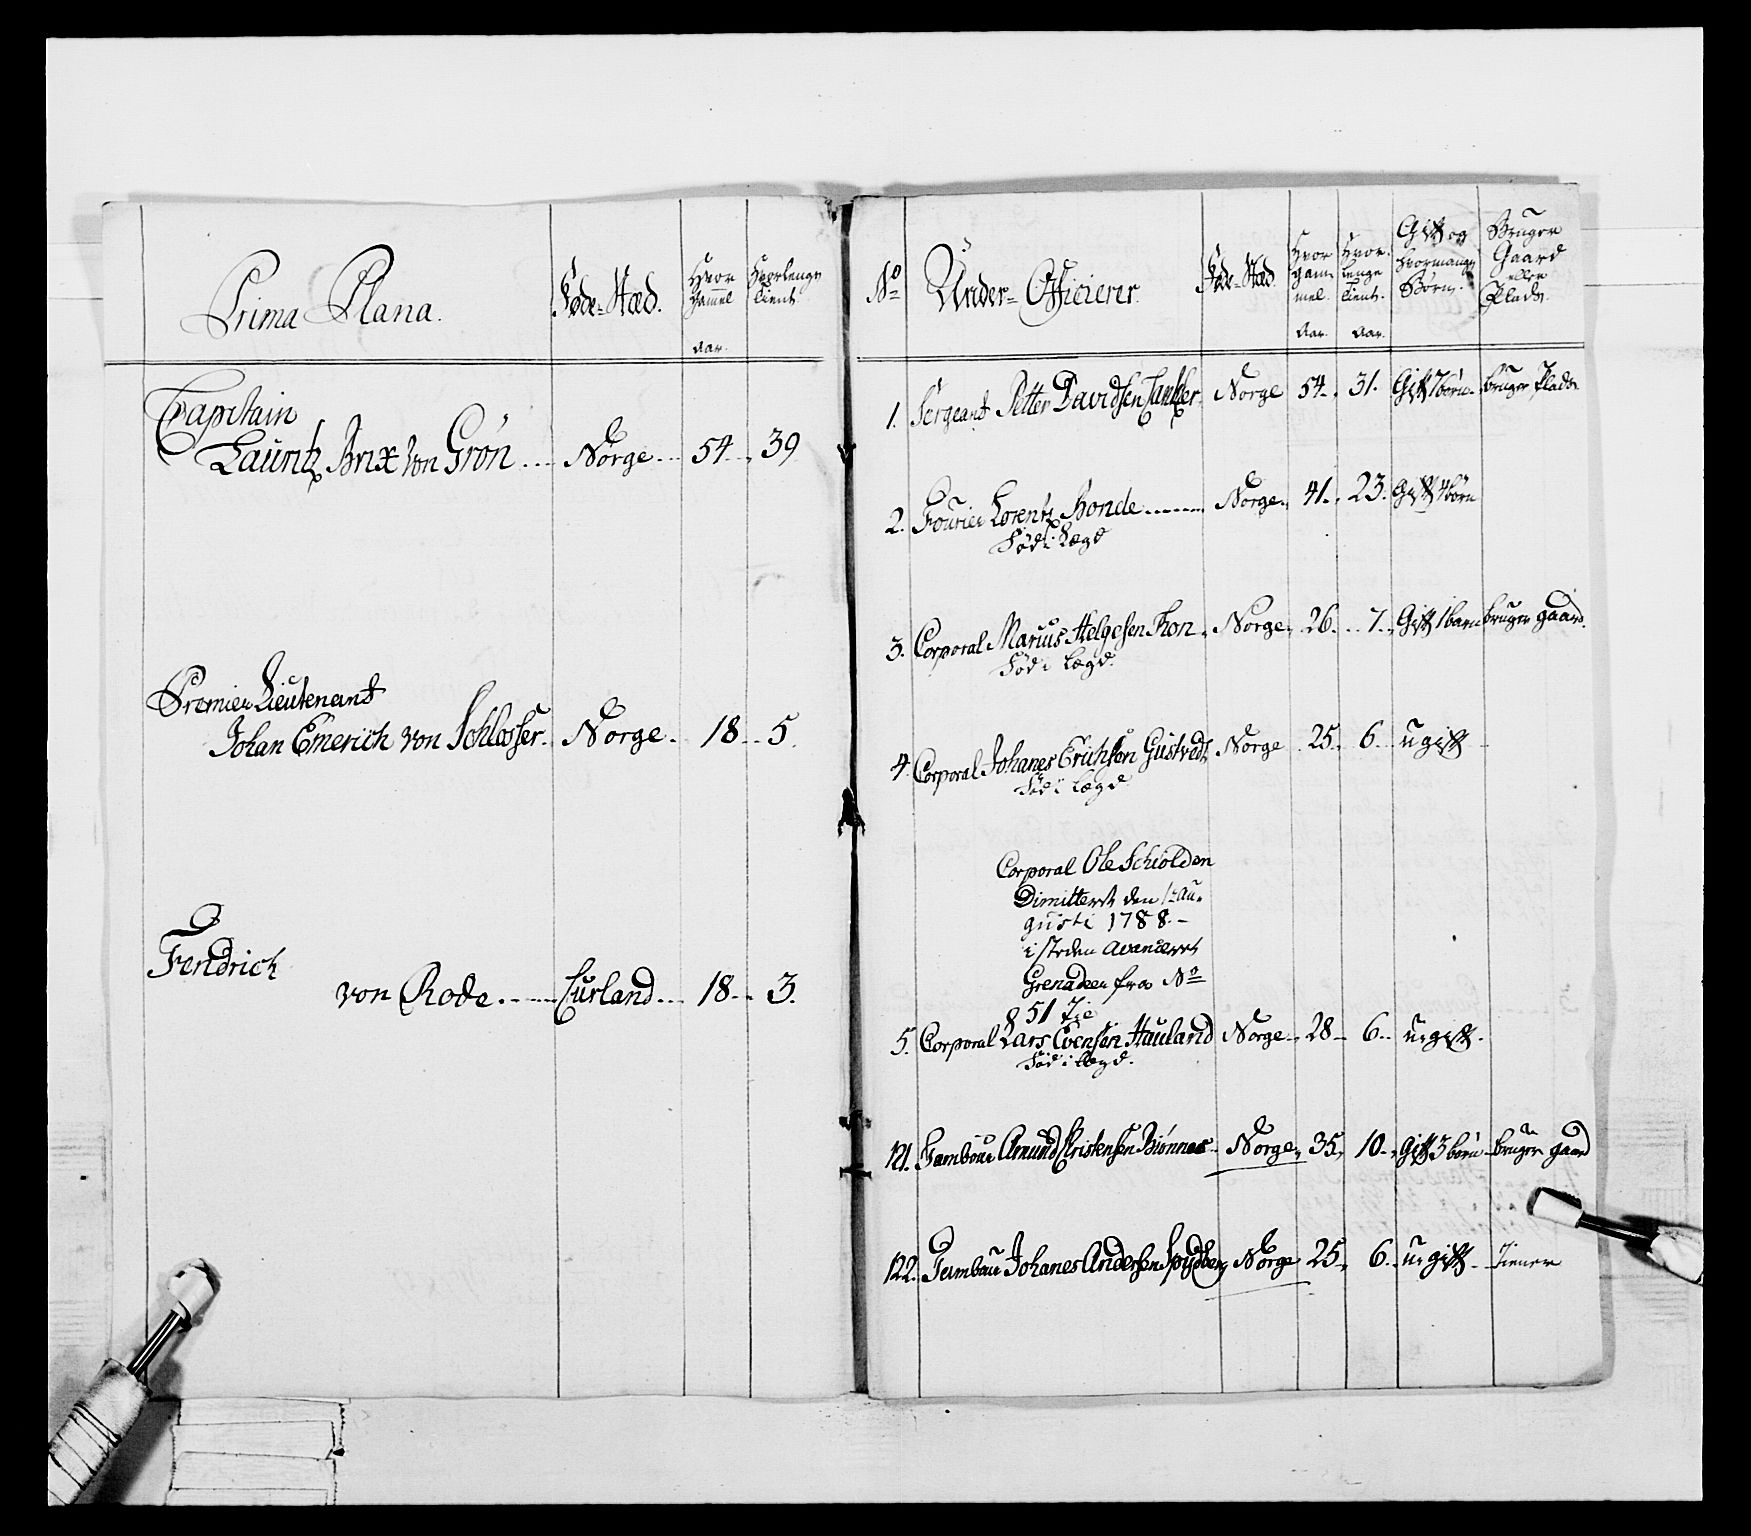 Prima Plana.
Føde-Stæd.
Hvor
gammel
Aar.
Hvorlenge
tient
Capitain
Lauritz Brix von Grøn .... Norge... 54.. 39
Premier Lieutenant
Johan Emerich von Schlosser. Norge. 18.. 5.
Fendrich
von Rode...... Curland... 18.. 3.
No
Under-Officierer.
Føde-Stæd.
Hvor
gam-
mel.
Aar.
Hvor
lenge
tient.
Aar.
Gift og
hvormange
Børn.
Bruger
Gaard
eller
Plads.
1. Sergeant Petter Davidsen Norge 54. 31. Gift 7 børn. bruger Plads
2. Fourier Lorentz Bonde........ Norge. 41. 23. Gift 4 børn
Fød i Lægd
3. Corporal Marius Helgesen Norge. 26. 7. Gift 1 barn bruger gaard.
Fød i Lægd.
4. Corporal Johanes Erichsen Gustvedt Norge 25. 6. ugift
Fød i Lægd.
Corporal Ole Schiolden
Dimittert den 1te Au-
gusti 1788.-
i steden avanceret
Grenadeer fra No
51
5. Corporal Lars Evensen Hauland Norge. 28. 6. ugift.
Fød i Lægd.
121. Tambour Amund Christensen Biønnes Norge. 35. 10. gift 3 børn bruger gaard
122. Tambour Johanes Andersen Spydberg Norge 25. 6. ugift. Tiener